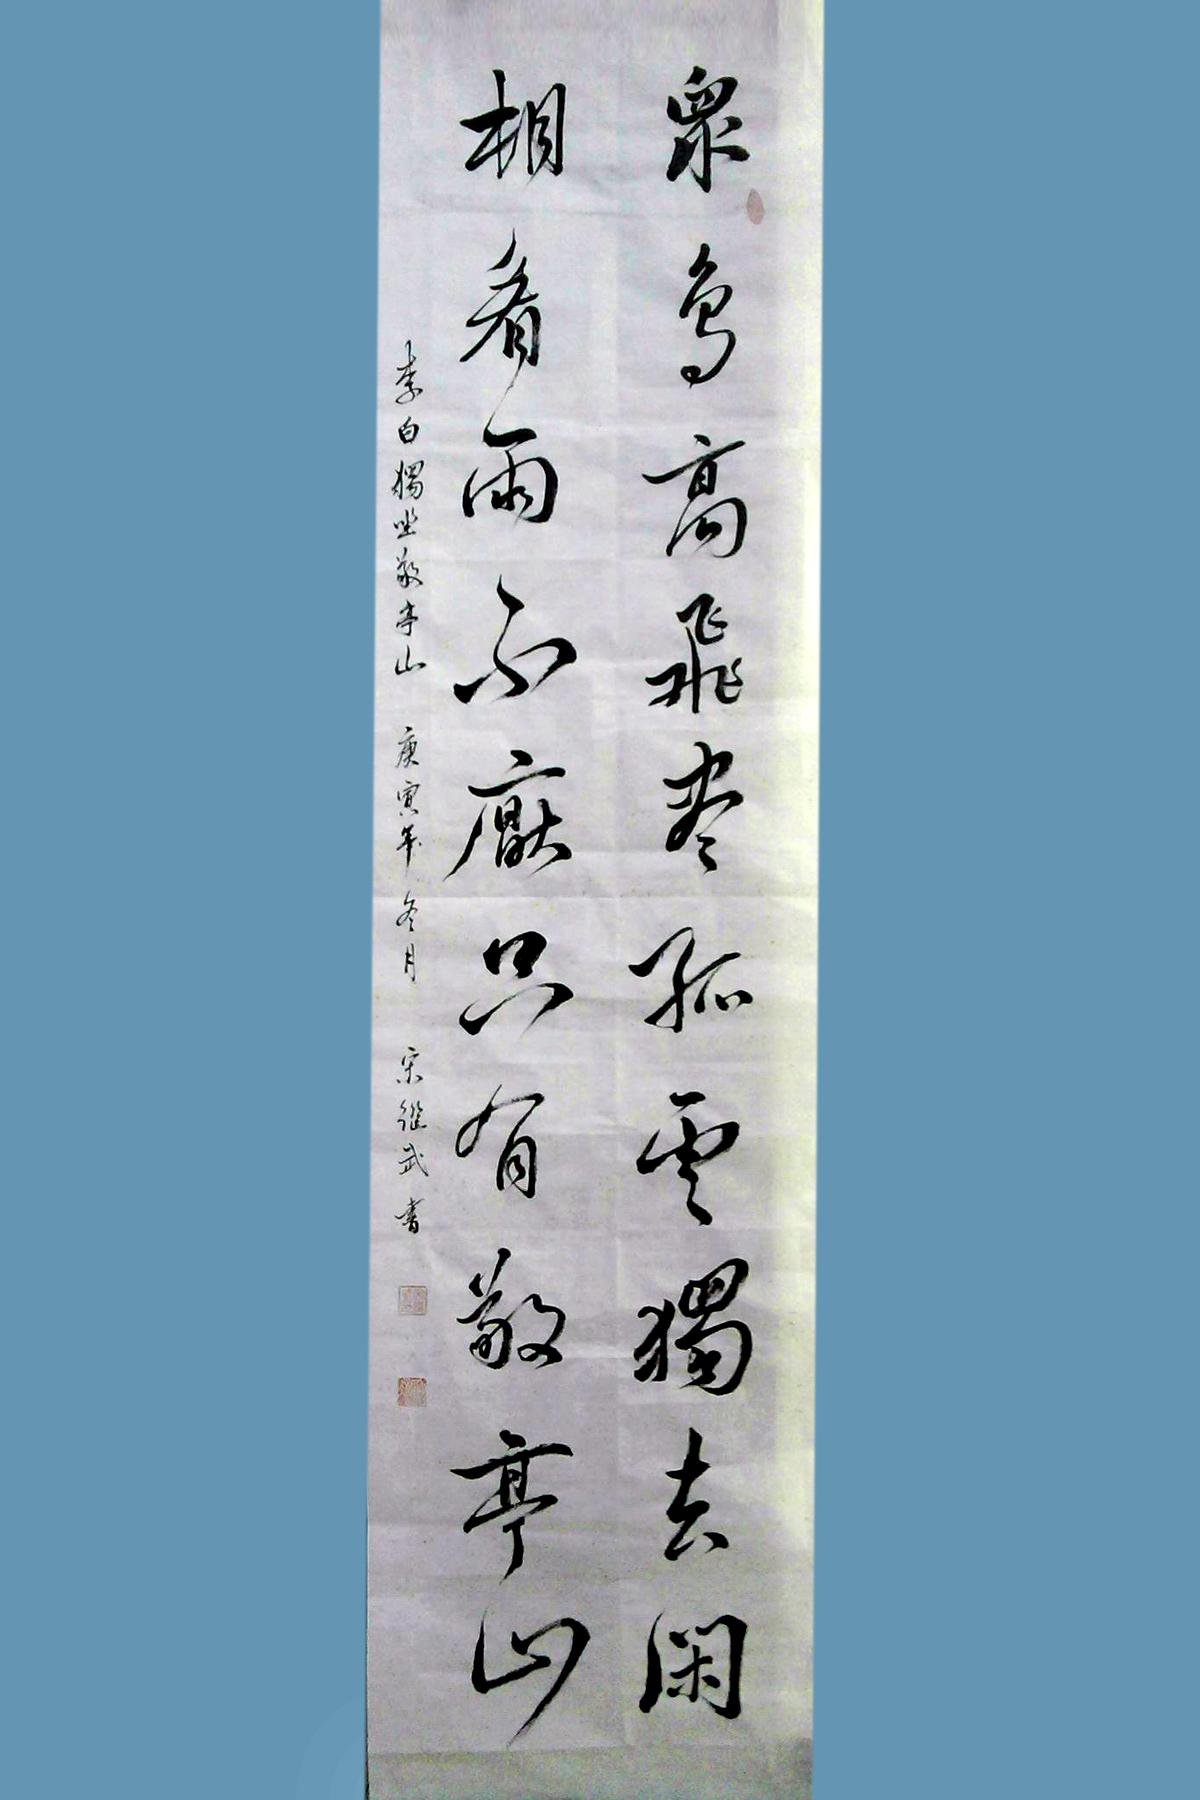 眾鳥高飛尽孤雲獨去閑
相看两不厭只有敬亭山
李白獨坐敬亭山 庚寅年冬月 宋継武書